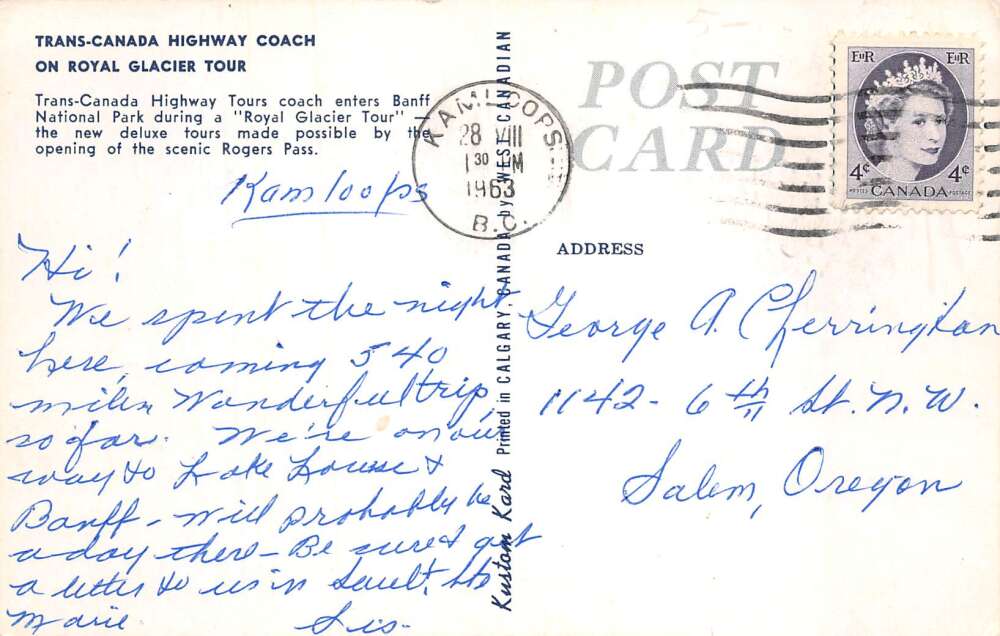 TRANS-CANADA HIGHWAY COACH
ON ROYAL GLACIER TOUR
Trans-Canada Highway Tours coach enters Banff
National Park during a "Royal Glacier Tour" —
the new deluxe tours made possible by the
opening of the scenic Rogers Pass.
Kamloops
Hi!
We spent the night
here, coming 540
miles. Wonderful trip,
so far. We're on our
way to Lake Louise &
Banff - Will probably be
a day there - Be sure & get
a letter to us in Sault. Ste
Marie Sis-
Kustom Kard Printed in CALGARY, CANADA by WEST CANADIAN
POST
CARD
KAMLOOPS
28 VIII
1 30 PM
1963
B.C.
EIIR EIIR
4¢ 4¢
POSTES CANADA POSTAGE
ADDRESS
George A. Cherrington
1142- 6th St. N.W.
Salem, Oregon